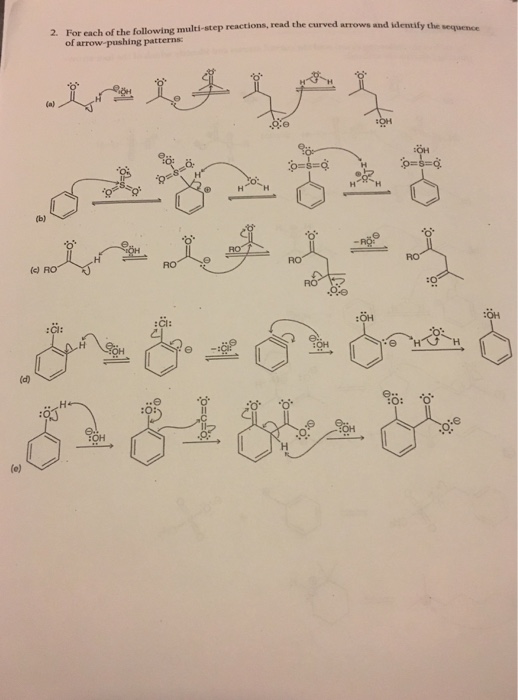 2. For each of the following multi-step reactions, read the curved arrows and identify the sequence
of arrow-pushing patterns:
(a)
H
:ÖH
H H
:ÖH
(b)
H
H H
O=S=O
H
H H
:ÖH
O=S=O
(c) RO
H
:ÖH
RO
RO
RO
RO
-RÖ:
RO
(d)
:Cl:
H
:ÖH
:Cl:
-:Cl:
:ÖH
:ÖH
H H
:ÖH
(e)
H
:ÖH
:Ö:
O=C=O
H
:ÖH
:Ö: